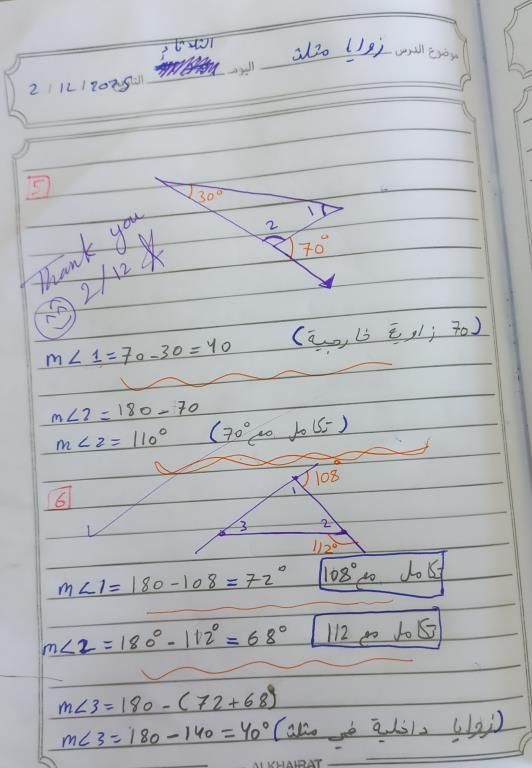 موضوع الدرس زوايا مثلث اليوم الثلاثاء التاريخ 2/12/2025
5
30°
1
2
70°
Thank you
2/12
m∠1 = 70 - 30 = 40 (70 زاوية خارجية)
m∠2 = 180 - 70
m∠2 = 110° (تكامل مع 70°)
6
108°
1
3 2
112°
m∠1 = 180 - 108 = 72° تكامل مع 108°
m∠2 = 180° - 112° = 68° تكامل مع 112
m∠3 = 180 - (72+68)
m∠3 = 180 - 140 = 40° (زوايا داخلية في مثلث)
ALKHAIRAT